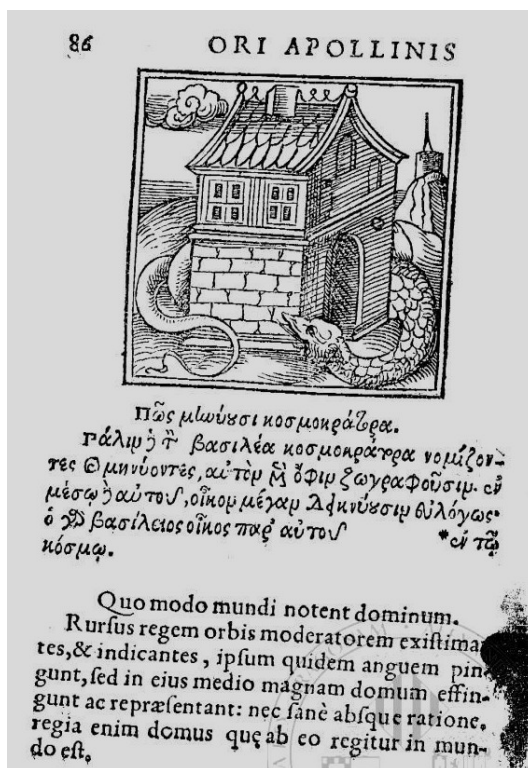 86 ORI APOLLINIS
Πῶς μηνύουσι κοσμοκράτορα.
Πάλιν ἢ τὸν βασιλέα κοσμοκράτορα νομίζον-
τες καὶ μηνύοντες, αὐτὸν μὲν ὄφιν ζωγραφοῦσιν. ἐν
μέσῳ ἢ αὐτοῦ, οἶκον μέγαν δεικνύουσιν εὐλόγως·
ὁ γὰρ βασίλειος οἶκος παρ' αὐτοῦ *ἐν τῷ
κόσμῳ.
Quo modo mundi notent dominum.
Rursus regem orbis moderatorem existima
tes, & indicantes, ipsum quidem anguem pin
gunt, sed in eius medio magnam domum effin
gunt ac repræsentant: nec sanè absque ratione,
regia enim domus quę ab eo regitur in mun-
do est.